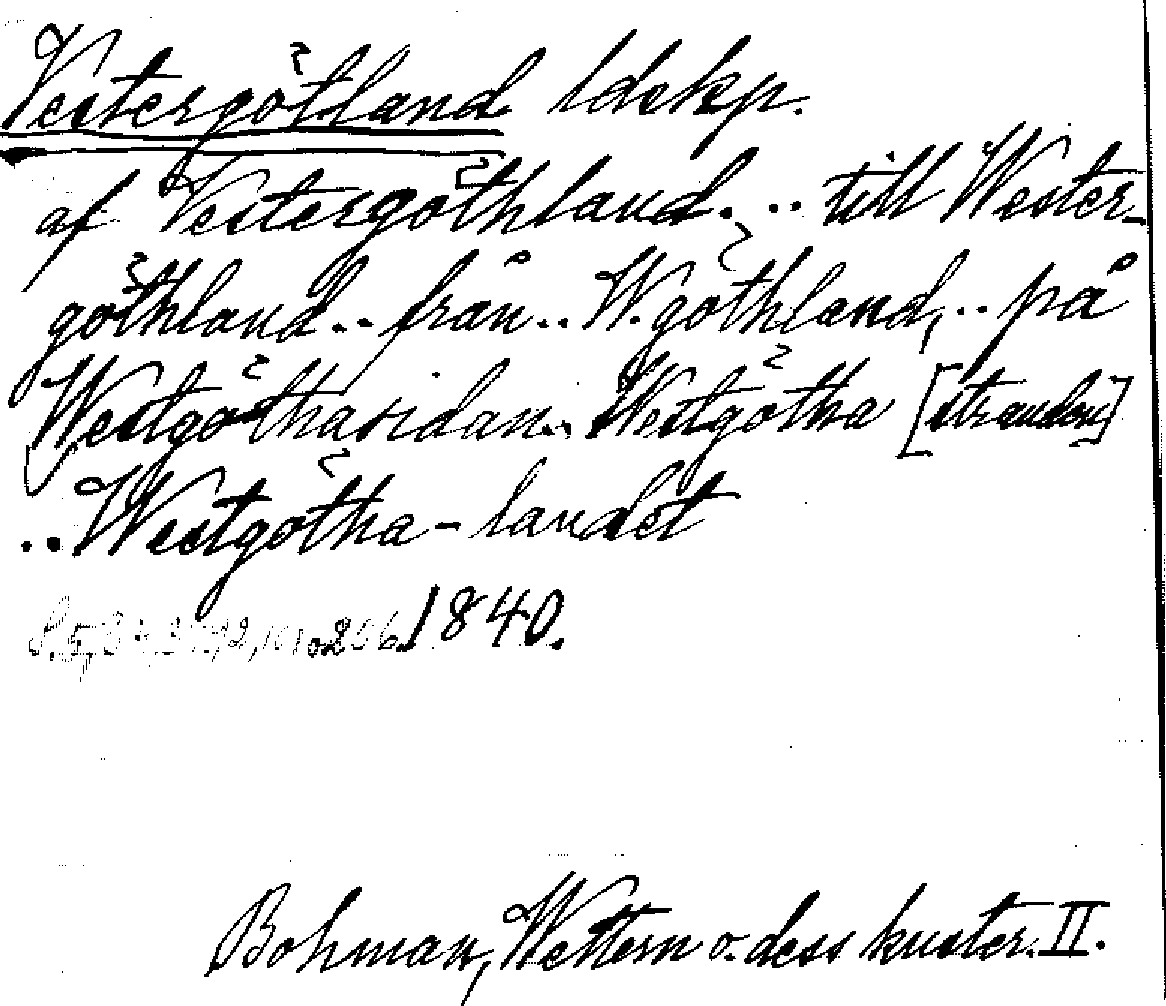 Vestergötland ldskp.
af Vestergöthland... till Wester-
göthland.. från.. W.göthland,.. på
Westgöthasidan.. Westgötha [stranden]
..Westgötha-landet
1840.
Bohman, Wettern o. dess kuster. II.